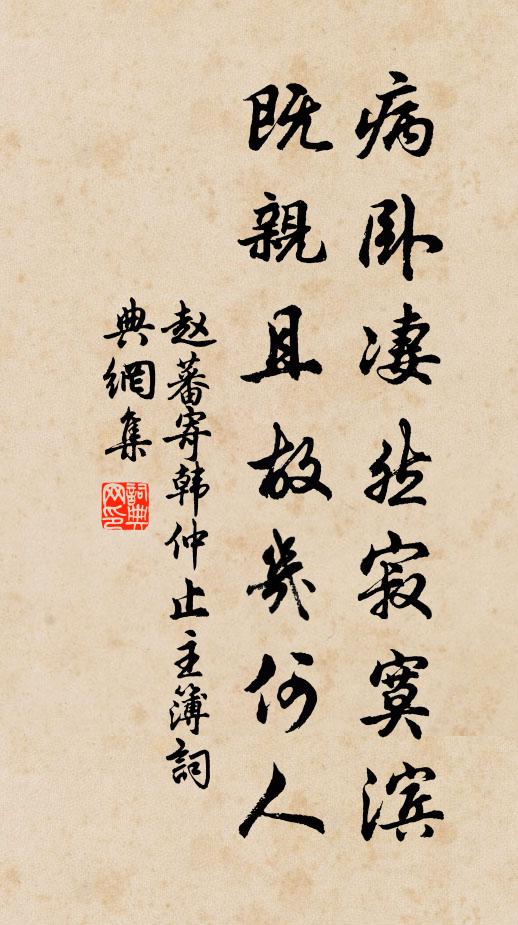 病卧凄然寂寞滨
既親且故幾何人
赵蕃寄韩仲止主簿詞
典網集
詞典
网印